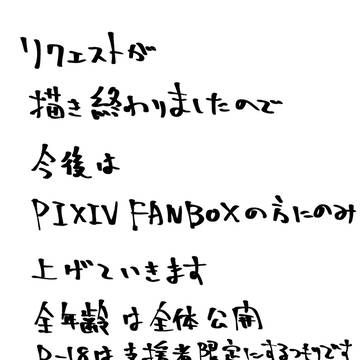 リクエストが
描き終わりましたので
今後は
PIXIV FANBOXの方にのみ
上げていきます
全年齢は全体公開
R-18は支援者限定にするつもりです